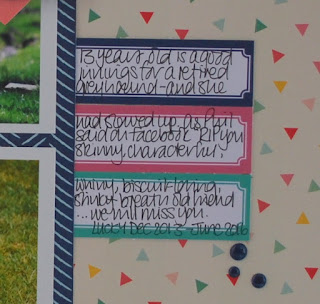 13 years old is a good
innings for a retired
greyhound - and she
had slowed up. As Phil
said on Facebook "RIP you
skinny, character full,
whiny, biscuit loving,
stinky breath old friend
... we will miss you.
Lucy Dec 2013 - June 2016